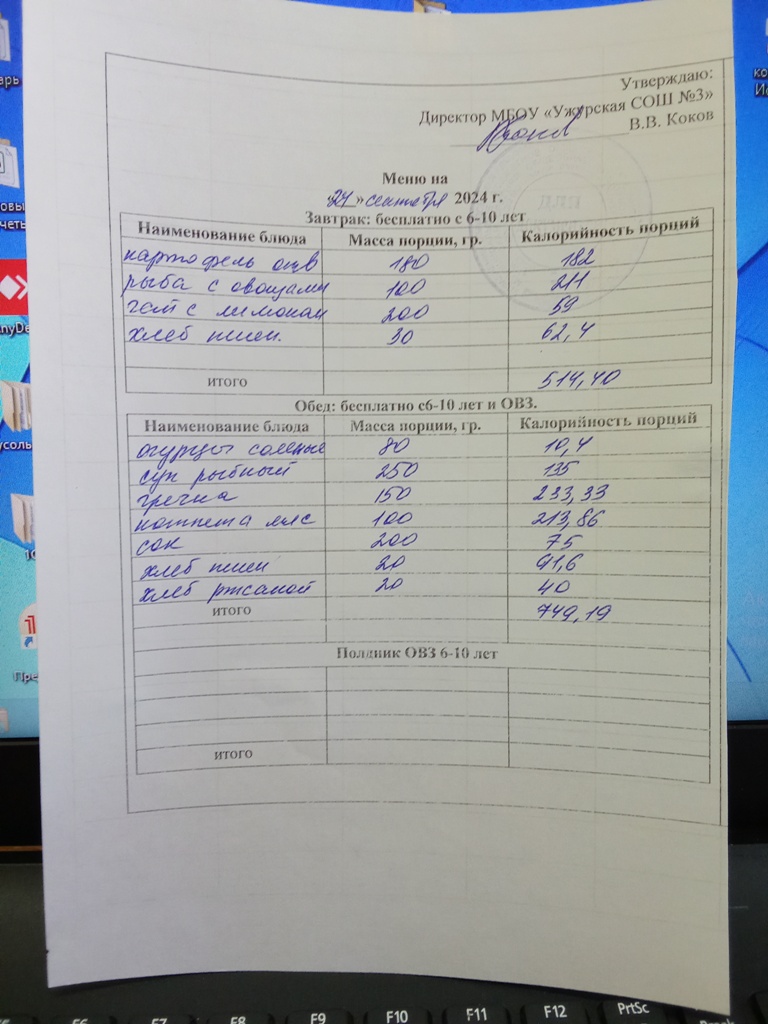 Утверждаю:
Директор МБОУ «Ужурская СОШ №3»
В.В. Коков
Меню на
» сентября 2024 г.
Завтрак: бесплатно с 6-10 лет
Наименование блюда Масса порции, гр. Калорийность порций
картофель отв 180 182
рыба с овощами 100 211
чай с лимоном 200 59
хлеб пшен. 30 62,4
итого 514,40
Обед: бесплатно с6-10 лет и ОВЗ.
Наименование блюда Масса порции, гр. Калорийность порций
огурцы соленые 80 10,4
суп рыбный 250 135
гречка 150 233,33
котлета мяс 100 213,86
сок 200 75
хлеб пшен 20 41,6
хлеб ржаной 20 40
итого 749,19
Полдник ОВЗ 6-10 лет
итого
F7
F8
F9
F10
F11
F12
PrtSc